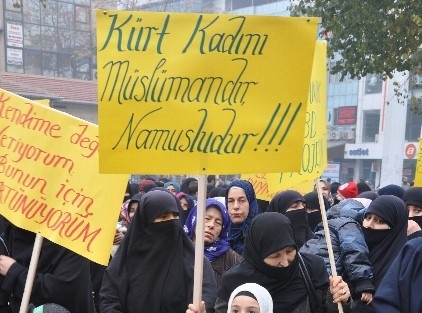 Kürt Kadını
Müslümandır,
Namusludur!!!
Kendime değ
veriyorum
Bunun için
ÖRTÜNÜYORUM
outlet
a